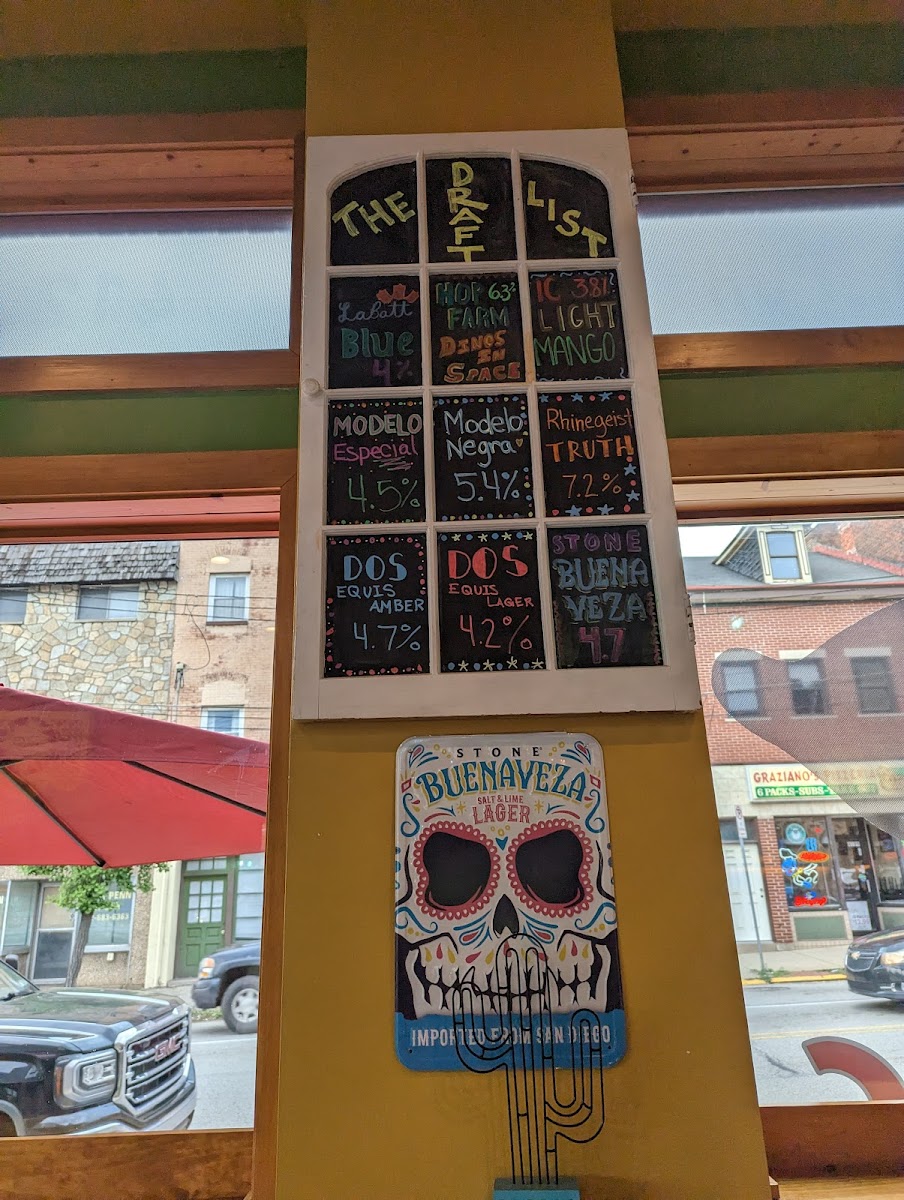 THE DRAFT LIST
Labatt
Blue
4%
HOP 6.3%
FARM
DINOS
IN
SPACE
IC 3.8%
LIGHT
MANGO
MODELO
Especial
4.5%
Modelo
Negra
5.4%
Rhinegeist
TRUTH
7.2%
DOS
EQUIS
AMBER
4.7%
DOS
EQUIS
LAGER
4.2%
STONE
BUENA
VEZA
4.7
STONE
BUENAVEZA
SALT & LIME
LAGER
IMPORTED FROM SAN DIEGO
PENN
GMC
GRAZIANO'S PIZZERIA
6 PACKS-SUBS-